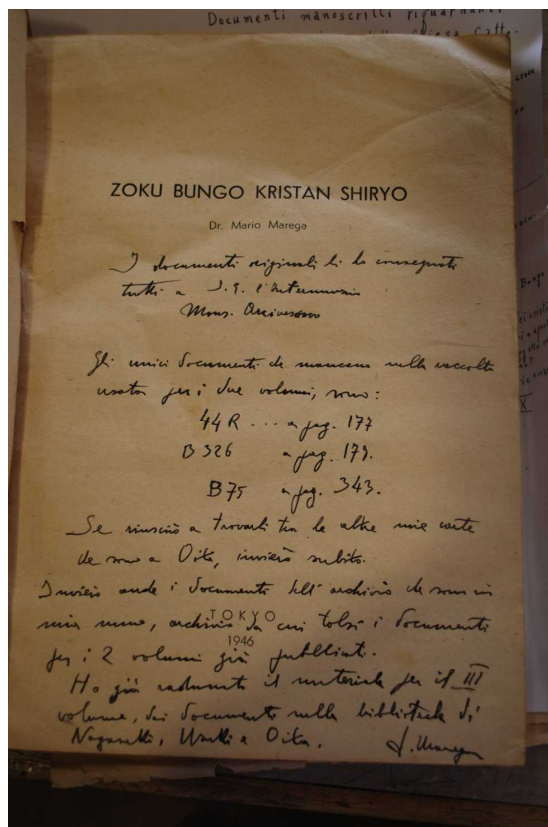 Documenti manoscritti riguardanti
ZOKU BUNGO KRISTAN SHIRYO
Dr. Mario Marega
I documenti originali li ho consegnati
tutti a S. E. l'Internunzio
Mons.
Gli unici documenti che mancano nella raccolta
usata per i due volumi, sono:
44 R ... a pag. 177
B 326 a pag. 179.
B 75 a pag. 343.
Se riuscirò a trovarli tra le altre mie carte
che sono a Oita, invierò subito.
Invierò anche i documenti dell' archivio che sono in
TOKYO
mia mano, archivio da cui tolsi i documenti
1946
per i 2 volumi già pubblicati.
Ho già radunato il materiale per il III
volume, dai documenti nella biblioteche di
Nagasaki, Usuki e Oita.
Marega
Bungo